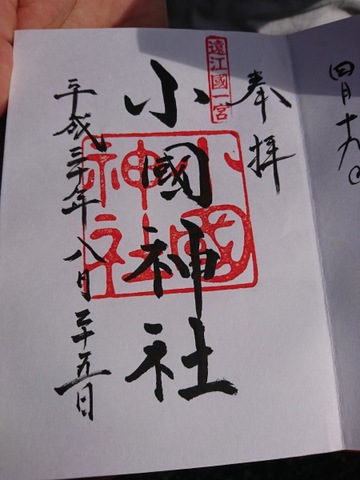 四月十九日
奉拝
遠江國一宮
小國神社
小國神社
平成三十年八月二十五日